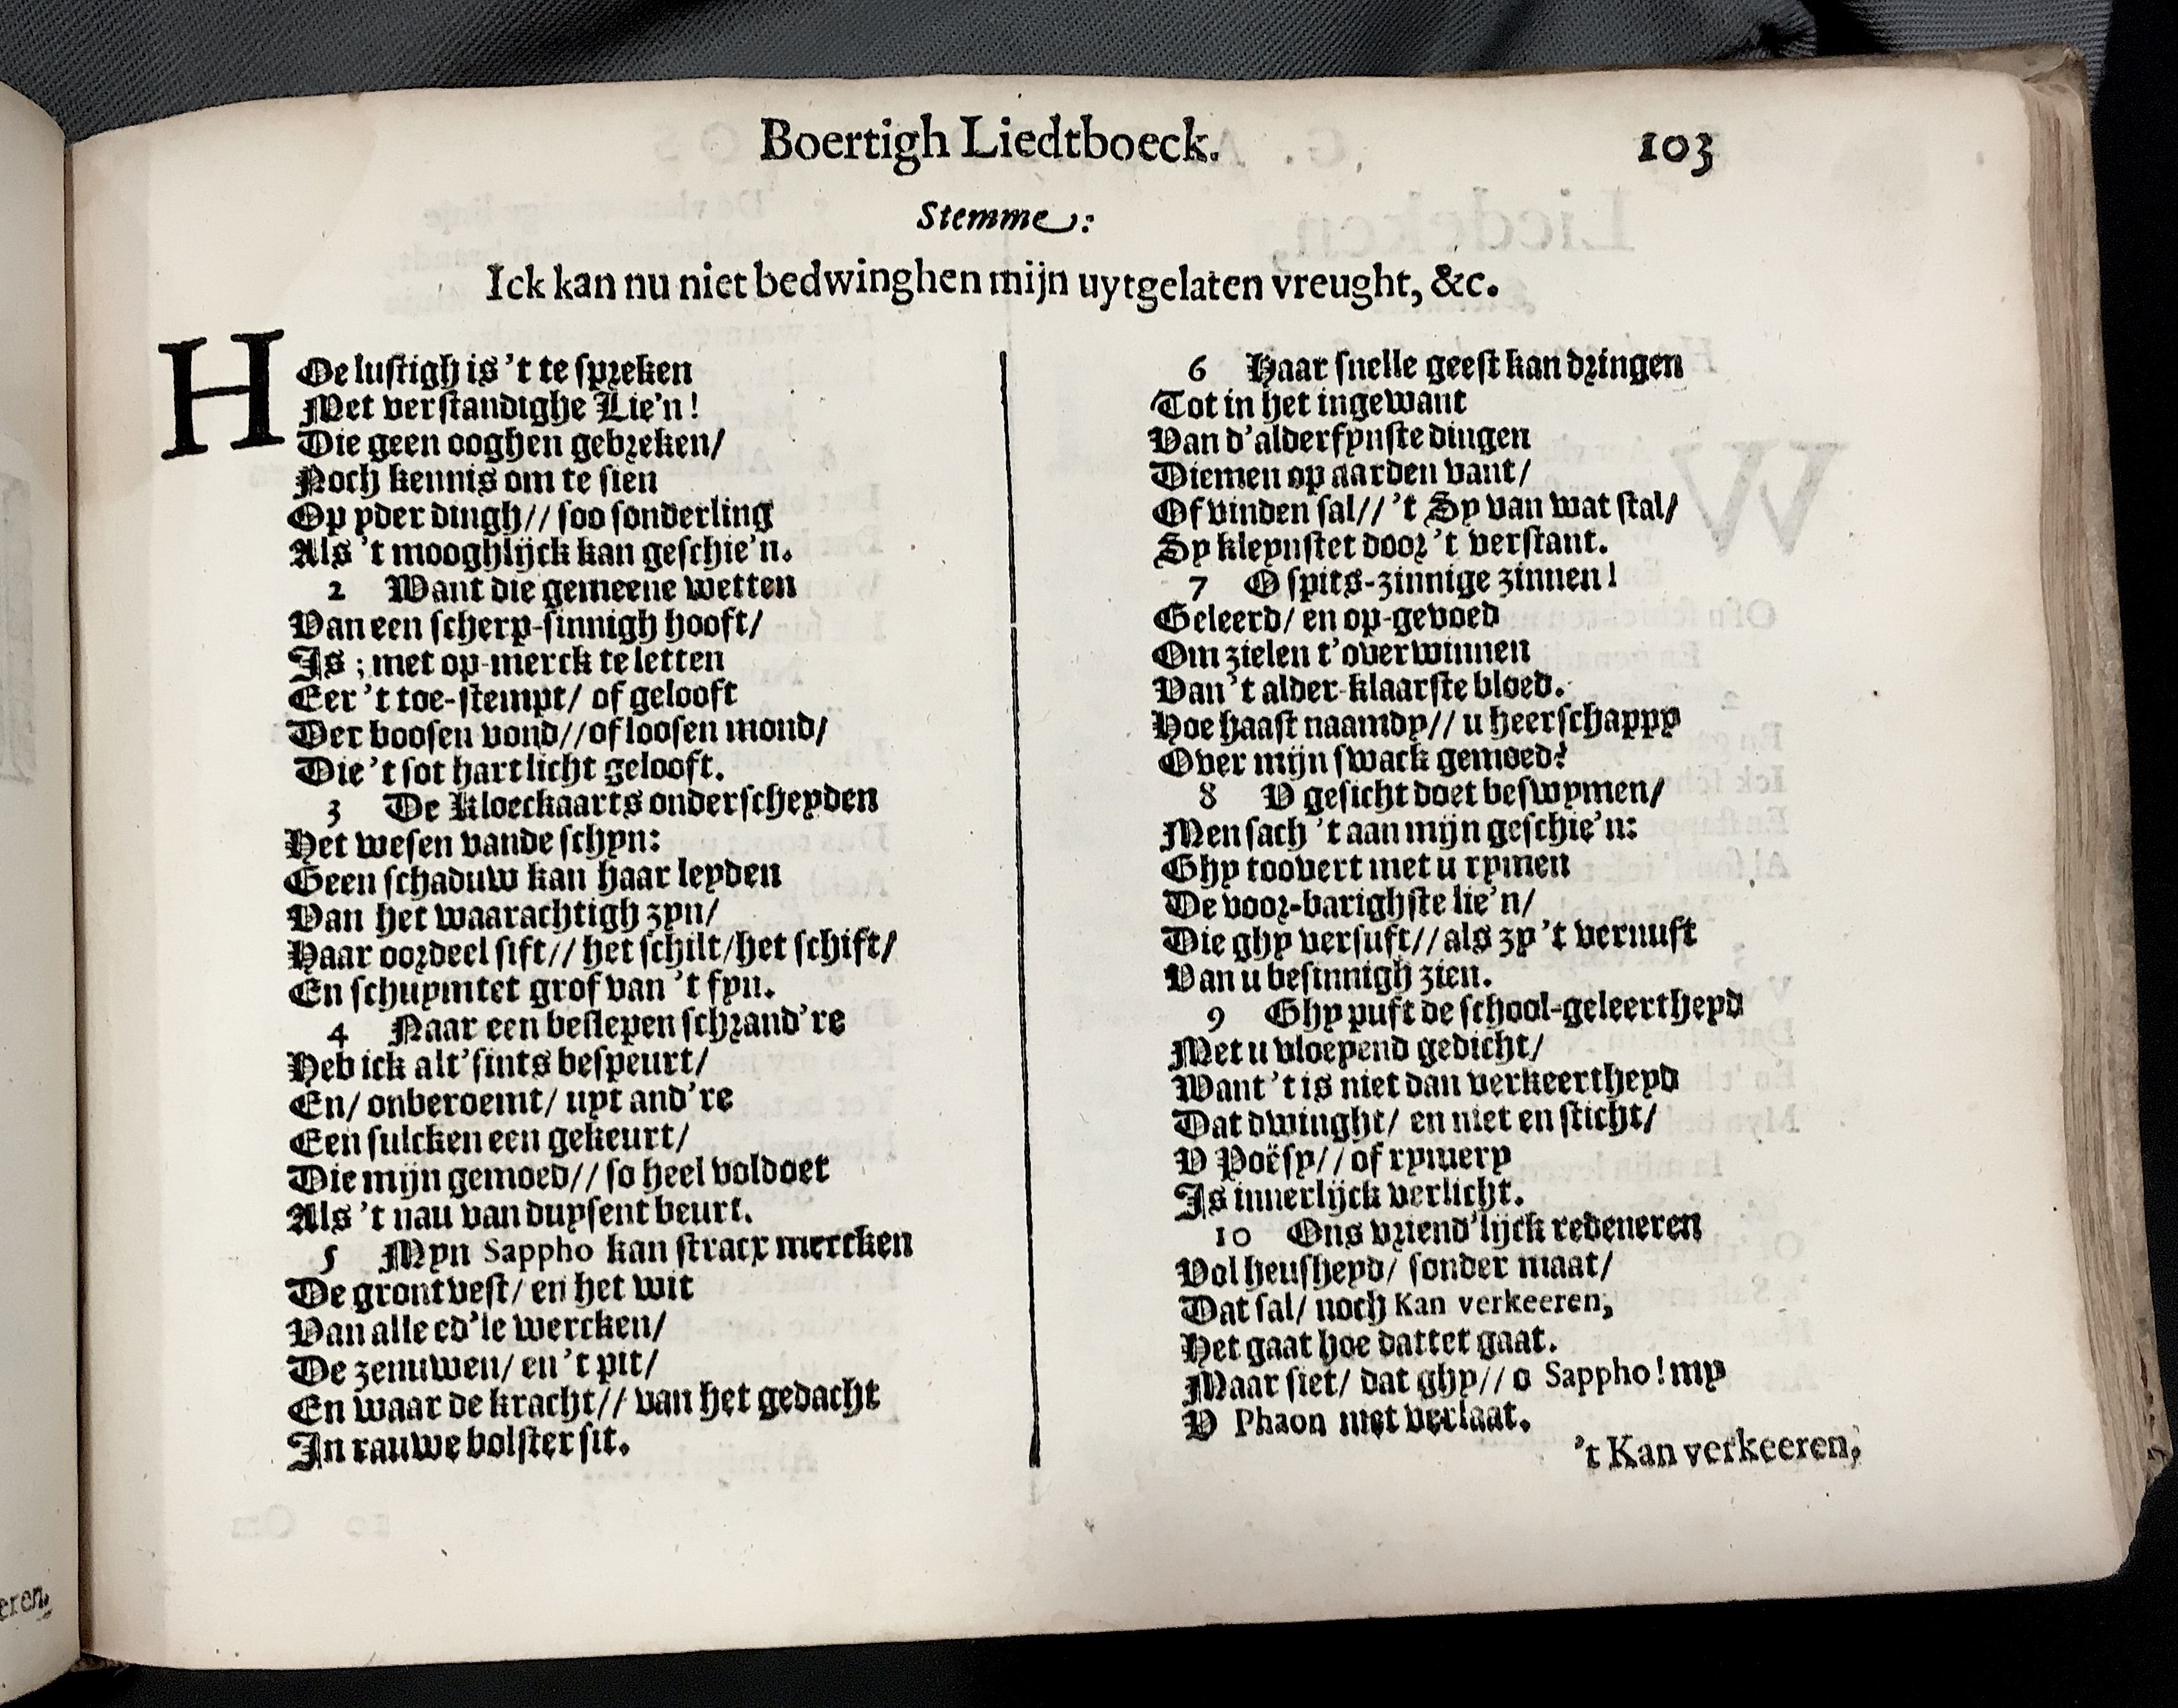 Boertigh Liedtboeck. 103
Stemme:
Ick kan nu niet bedwinghen mijn uytgelaten vreught, &c.
HOe lustigh is 't te spreken
Met verstandighe Lie'n!
Die geen ooghen gebreken/
Noch kennis om te sien
Op yder dingh// soo sonderling
Als 't mooghlijck kan geschie'n.
2 Want die gemeene wetten
Van een scherp-sinnigh hooft/
Is ; met op-merck te letten
Eer 't toe-stempt/ of gelooft
Der boosen vond// of loosen mond/
Die 't sot hart licht gelooft.
3 De Kloeckaarts onderscheyden
Het wesen vande schyn:
Geen schaduw kan haar leyden
Van het waarachtigh zyn/
Haar oordeel sift// het schilt/ het schift/
En schuymtet grof van 't fyn.
4 Naar een beslepen schrand're
Heb ick alt'sints bespeurt/
En/ onberoemt/ uyt and're
Een sulcken een gekeurt/
Die mijn gemoed// so heel voldoet
Als 't nau van duysent beurt.
5 Myn Sappho kan stracx mercken
De grontvest/ en het wit
Van alle ed'le wercken/
De zenuwen/ en 't pit/
En waar de kracht// van het gedacht
In rauwe bolster sit.
6 Haar snelle geest kan dringen
Tot in het ingewant
Van d'alderfynste dingen
Diemen op aarden vant/
Of vinden sal// 't Sy van wat stal/
Sy kleynstet door 't verstant.
7 O spits-zinnige zinnen!
Geleerd/ en op-gevoed
Om zielen t'overwinnen
Van 't alder-klaarste bloed.
Hoe haast naamdy// u heerschappy
Over mijn swack gemoed?
8 V gesicht doet beswymen/
Men sach 't aan mijn geschie'n:
Ghy toovert met u rymen
De voor-barighste lie'n/
Die ghy versuft// als zy 't vernuft
Van u besinnigh zien.
9 Ghy puft de school-geleertheyd
Met u vloeyend gedicht/
Want 't is niet dan verkeertheyd
Dat dwinght/ en niet en sticht/
V Poësy// of rymery
Is innerlijck verlicht.
10 Ons vriend'lijck redeneren
Vol heusheyd/ sonder maat/
Dat sal/ noch Kan verkeeren,
Het gaat hoe dattet gaat.
Maar siet/ dat ghy// o Sappho! my
V Phaon niet verlaat.
't Kan verkeeren,
eren.